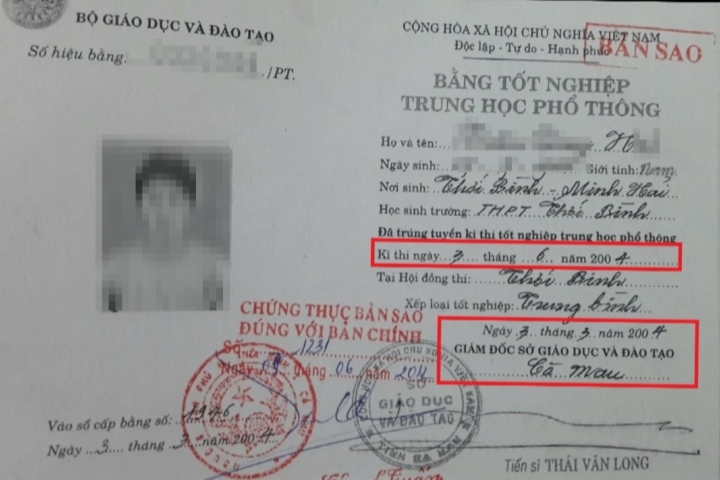 BỘ GIÁO DỤC VÀ ĐÀO TẠO
Số hiệu bằng. /PT.
CỘNG HÒA XÃ HỘI CHỦ NGHĨA VIỆT NAM
Độc lập - Tự do - Hạnh phúc
BẢN SAO
BẰNG TỐT NGHIỆP
TRUNG HỌC PHỔ THÔNG
Họ và tên:
Ngày sinh: Giới tính: Nam
Nơi sinh: Thới Bình - Minh Hải
Học sinh trường: THPT Thới Bình
Đã trúng tuyển kì thi tốt nghiệp trung học phổ thông
Kì thi ngày 3 tháng 6 năm 2004
Tại Hội đồng thi: Thới Bình
Xếp loại tốt nghiệp: Trung bình
Ngày 3 tháng 3 năm 2004
GIÁM ĐỐC SỞ GIÁO DỤC VÀ ĐÀO TẠO
Cà Mau
CHỨNG THỰC BẢN SAO
ĐÚNG VỚI BẢN CHÍNH
Số 1231
Ngày 09 tháng 06 năm
SỞ
GIÁO DỤC
VÀ ĐÀO TẠO
Vào sổ cấp bằng số: 1946
Ngày 3 tháng 3 năm 2004
Tiến sĩ THÁI VĂN LONG